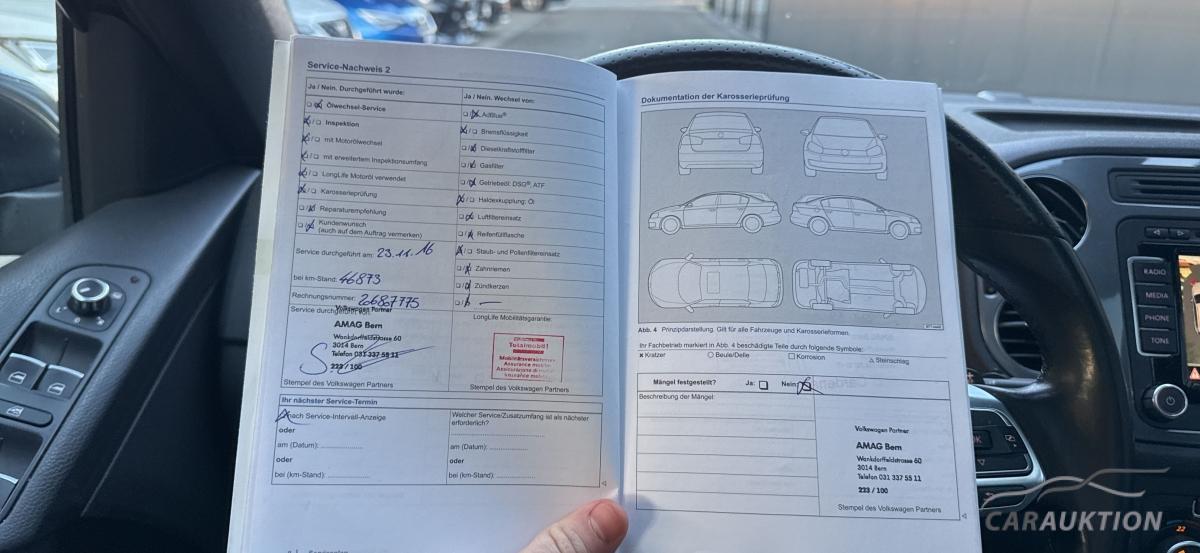 Service-Nachweis 2
Ja / Nein. Durchgeführt wurde:
Ja / Nein. Wechsel von:
Ölwechsel-Service
AdBlue®
Inspektion
Bremsflüssigkeit
mit Motorölwechsel
Dieselkraftstofffilter
mit erweitertem Inspektionsumfang
Gasfilter
LongLife Motoröl verwendet
Getriebeöl: DSG®, ATF
Karosserieprüfung
Haldexkupplung: Öl
Reparaturempfehlung
Luftfiltereinsatz
Kundenwunsch
(auch auf dem Auftrag vermerken)
Reifenfüllflasche
Staub- und Pollenfiltereinsatz
Service durchgeführt am: 23.11.16
Zahnriemen
bei km-Stand: 46873
Zündkerzen
Rechnungsnummer: 26867775
Service durchgeführt von:
Volkswagen Partner
AMAG Bern
Wankdorffeldstrasse 60
3014 Bern
Telefon 031 337 55 11
223 / 100
Stempel des Volkswagen Partners
LongLife Mobilitätsgarantie:
Totalmobil!
Stempel des Volkswagen Partners
Ihr nächster Service-Termin
nach Service-Intervall-Anzeige
oder
am (Datum):
oder
bei (km-Stand):
Welcher Service/Zusatzumfang ist als nächster
erforderlich?
am (Datum):
oder
bei (km-Stand):
Dokumentation der Karosserieprüfung
Abb. 4 Prinzipdarstellung. Gilt für alle Fahrzeuge und Karosserieformen.
Ihr Fachbetrieb markiert in Abb. 4 beschädigte Teile durch folgende Symbole:
Kratzer
Beule/Delle
Korrosion
Steinschlag
Mängel festgestellt? Ja: Nein:
Beschreibung der Mängel:
Volkswagen Partner
AMAG Bern
Wankdorffeldstrasse 60
3014 Bern
Telefon 031 337 55 11
223 / 100
Stempel des Volkswagen Partners
RADIO
MEDIA
PHONE
TONE
CARAUKTION